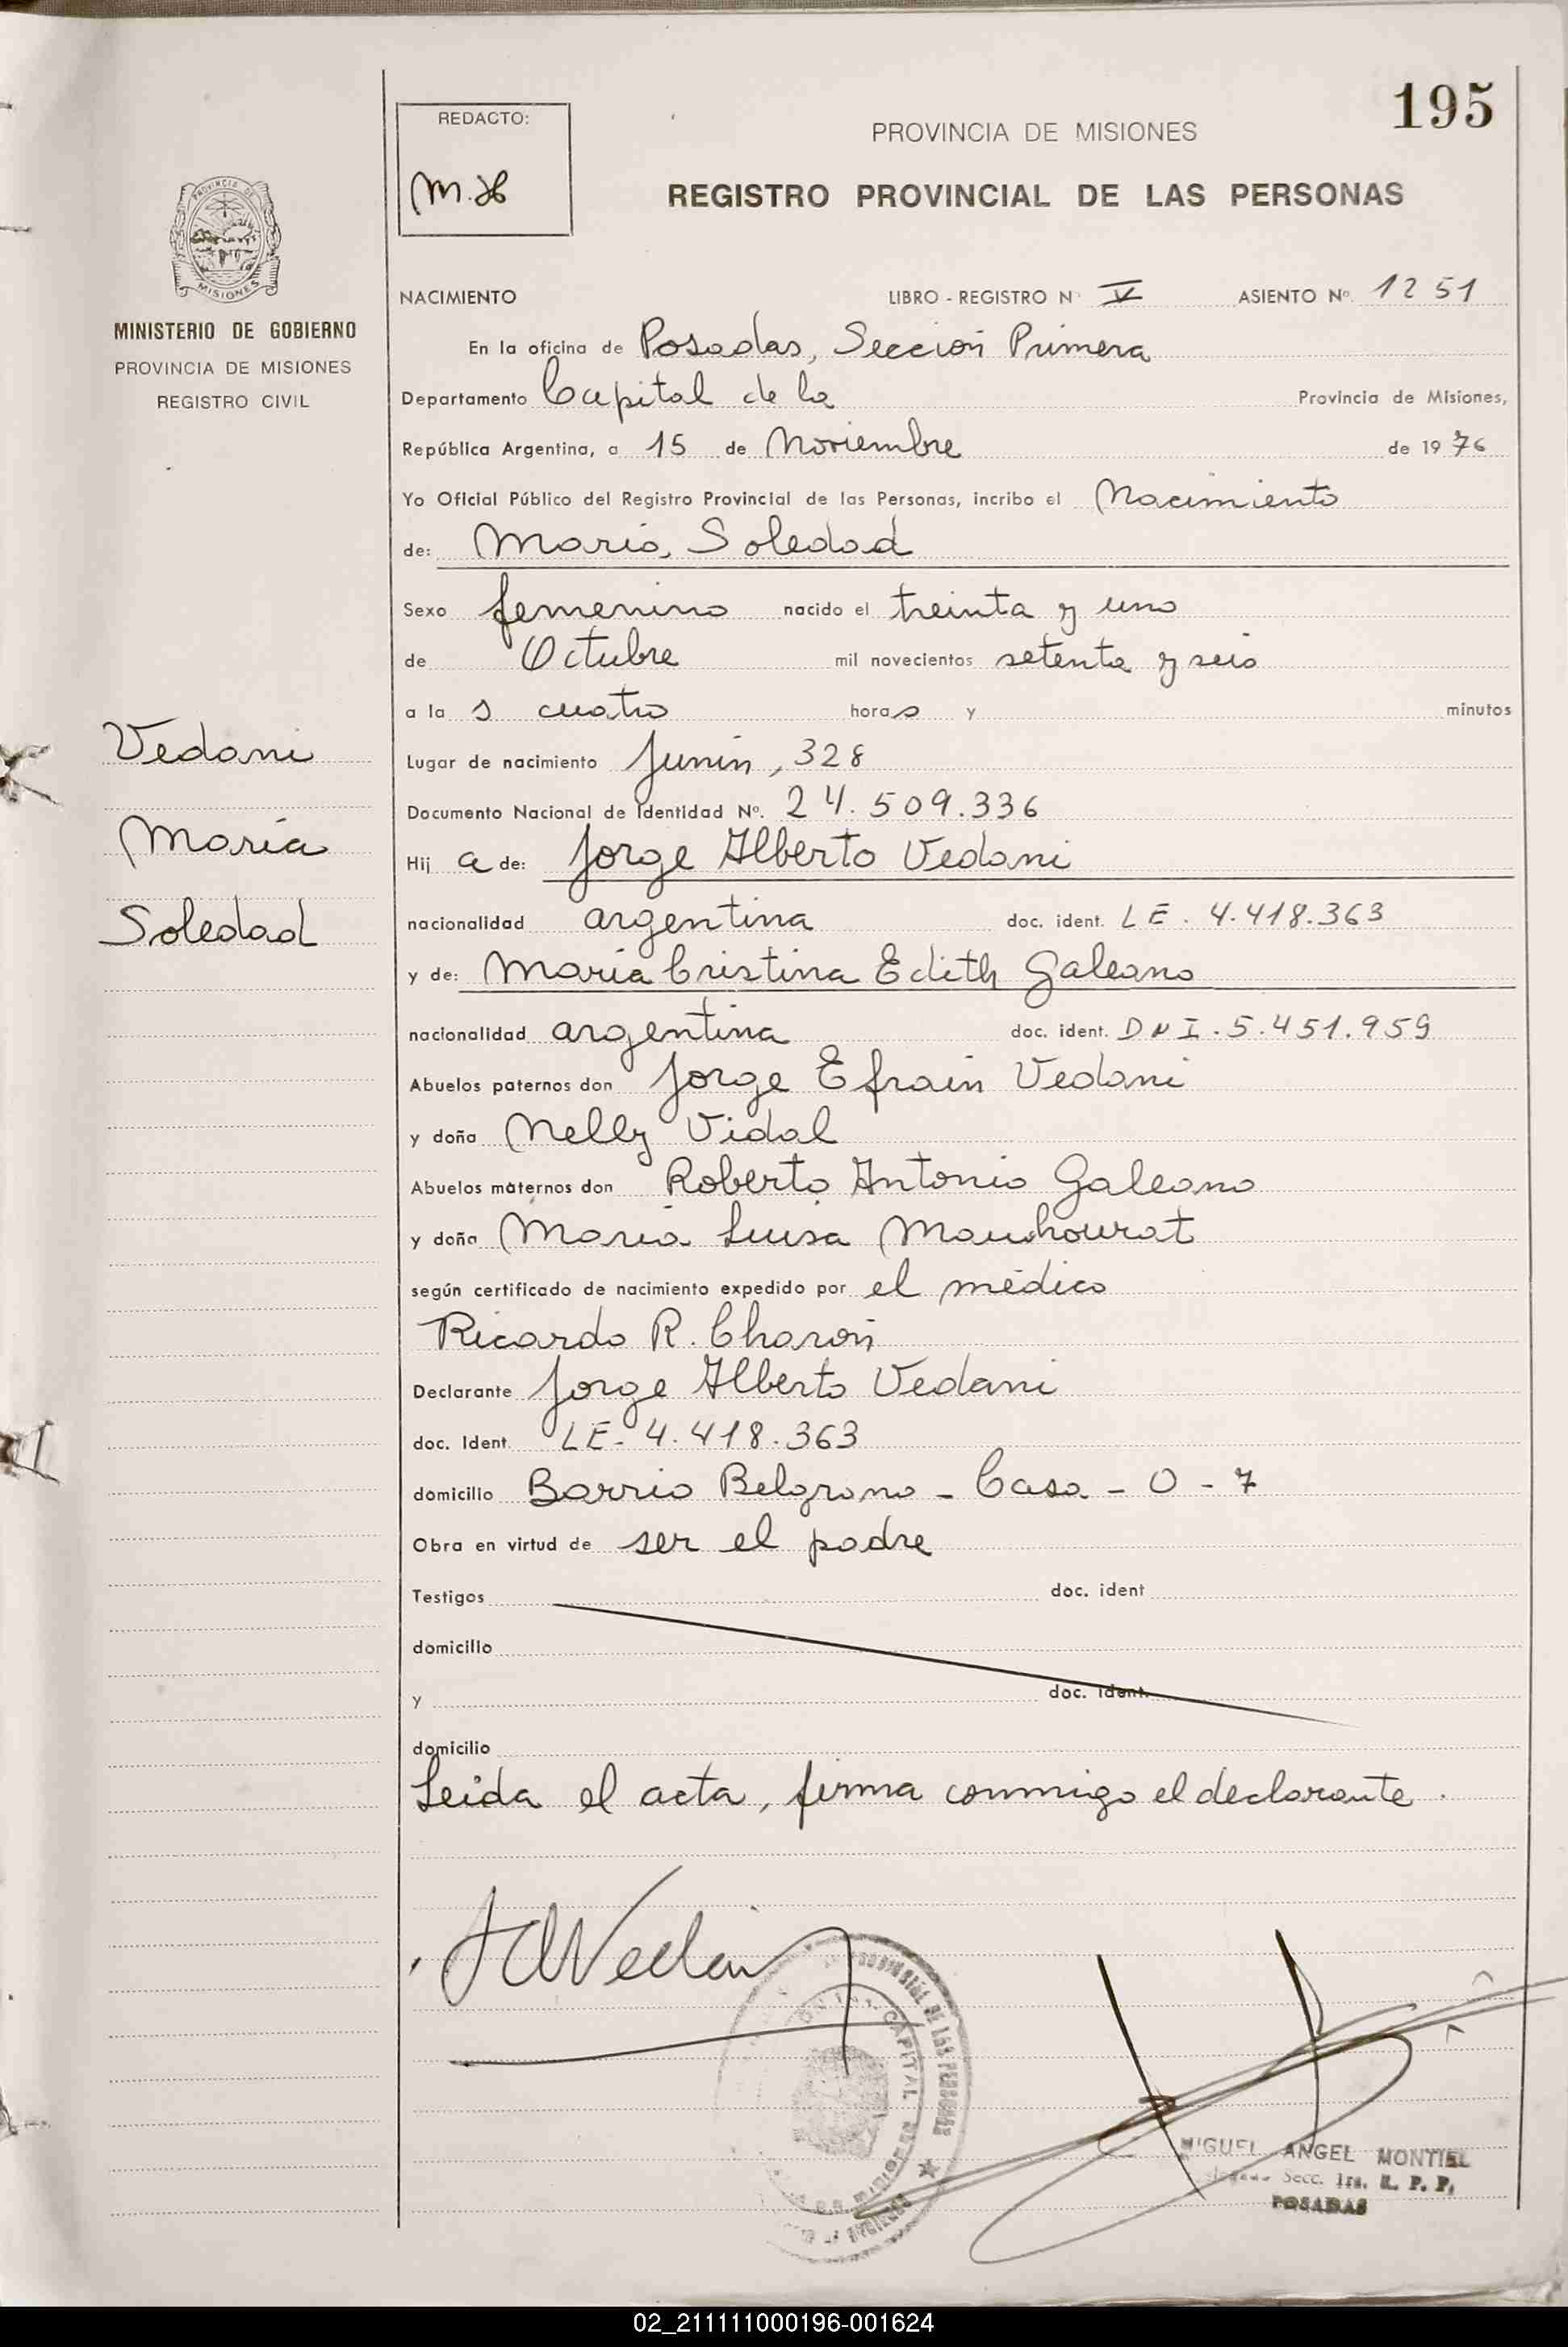 195
REDACTO:
M.H
PROVINCIA DE MISIONES
REGISTRO PROVINCIAL DE LAS PERSONAS
PROVINCIA DE
MISIONES
MINISTERIO DE GOBIERNO
PROVINCIA DE MISIONES
REGISTRO CIVIL
NACIMIENTO LIBRO - REGISTRO Nº V ASIENTO Nº. 1251
En la oficina de Posadas, Sección Primera
Departamento Capital de la Provincia de Misiones,
República Argentina, a 15 de Noviembre de 1976
Yo Oficial Público del Registro Provincial de las Personas, incribo el Nacimiento
de: María Soledad
Sexo femenino nacido el treinta y uno
de Octubre mil novecientos setenta y seis
a la s cuatro horas y minutos
Vedani
María
Soledad
Lugar de nacimiento Junín, 328
Documento Nacional de Identidad Nº. 24.509.336
Hij a de: Jorge Alberto Vedani
nacionalidad argentina doc. ident. LE. 4.418.363
y de: María Cristina Edith Galeano
nacionalidad argentina doc. ident. DNI. 5.451.959
Abuelos paternos don Jorge Efrain Vedani
y doña Nelly Vidal
Abuelos maternos don Roberto Antonio Galeano
y doña María Luisa Mauhourat
según certificado de nacimiento expedido por el médico
Ricardo R. Charón
Declarante Jorge Alberto Vedani
doc. Ident. LE- 4.418.363
domicilio Barrio Belgrano - Casa - O - 7
Obra en virtud de ser el padre
Testigos doc. ident
domicilio
y doc. ident.
domicilio
Leida el acta, firma conmigo el declarante.
PROVINCIAL DE LAS PERSONAS
CAPITAL
MIGUEL ANGEL MONTIEL
Secc. 1ra. R. P. P.
POSADAS
02_211111000196-001624